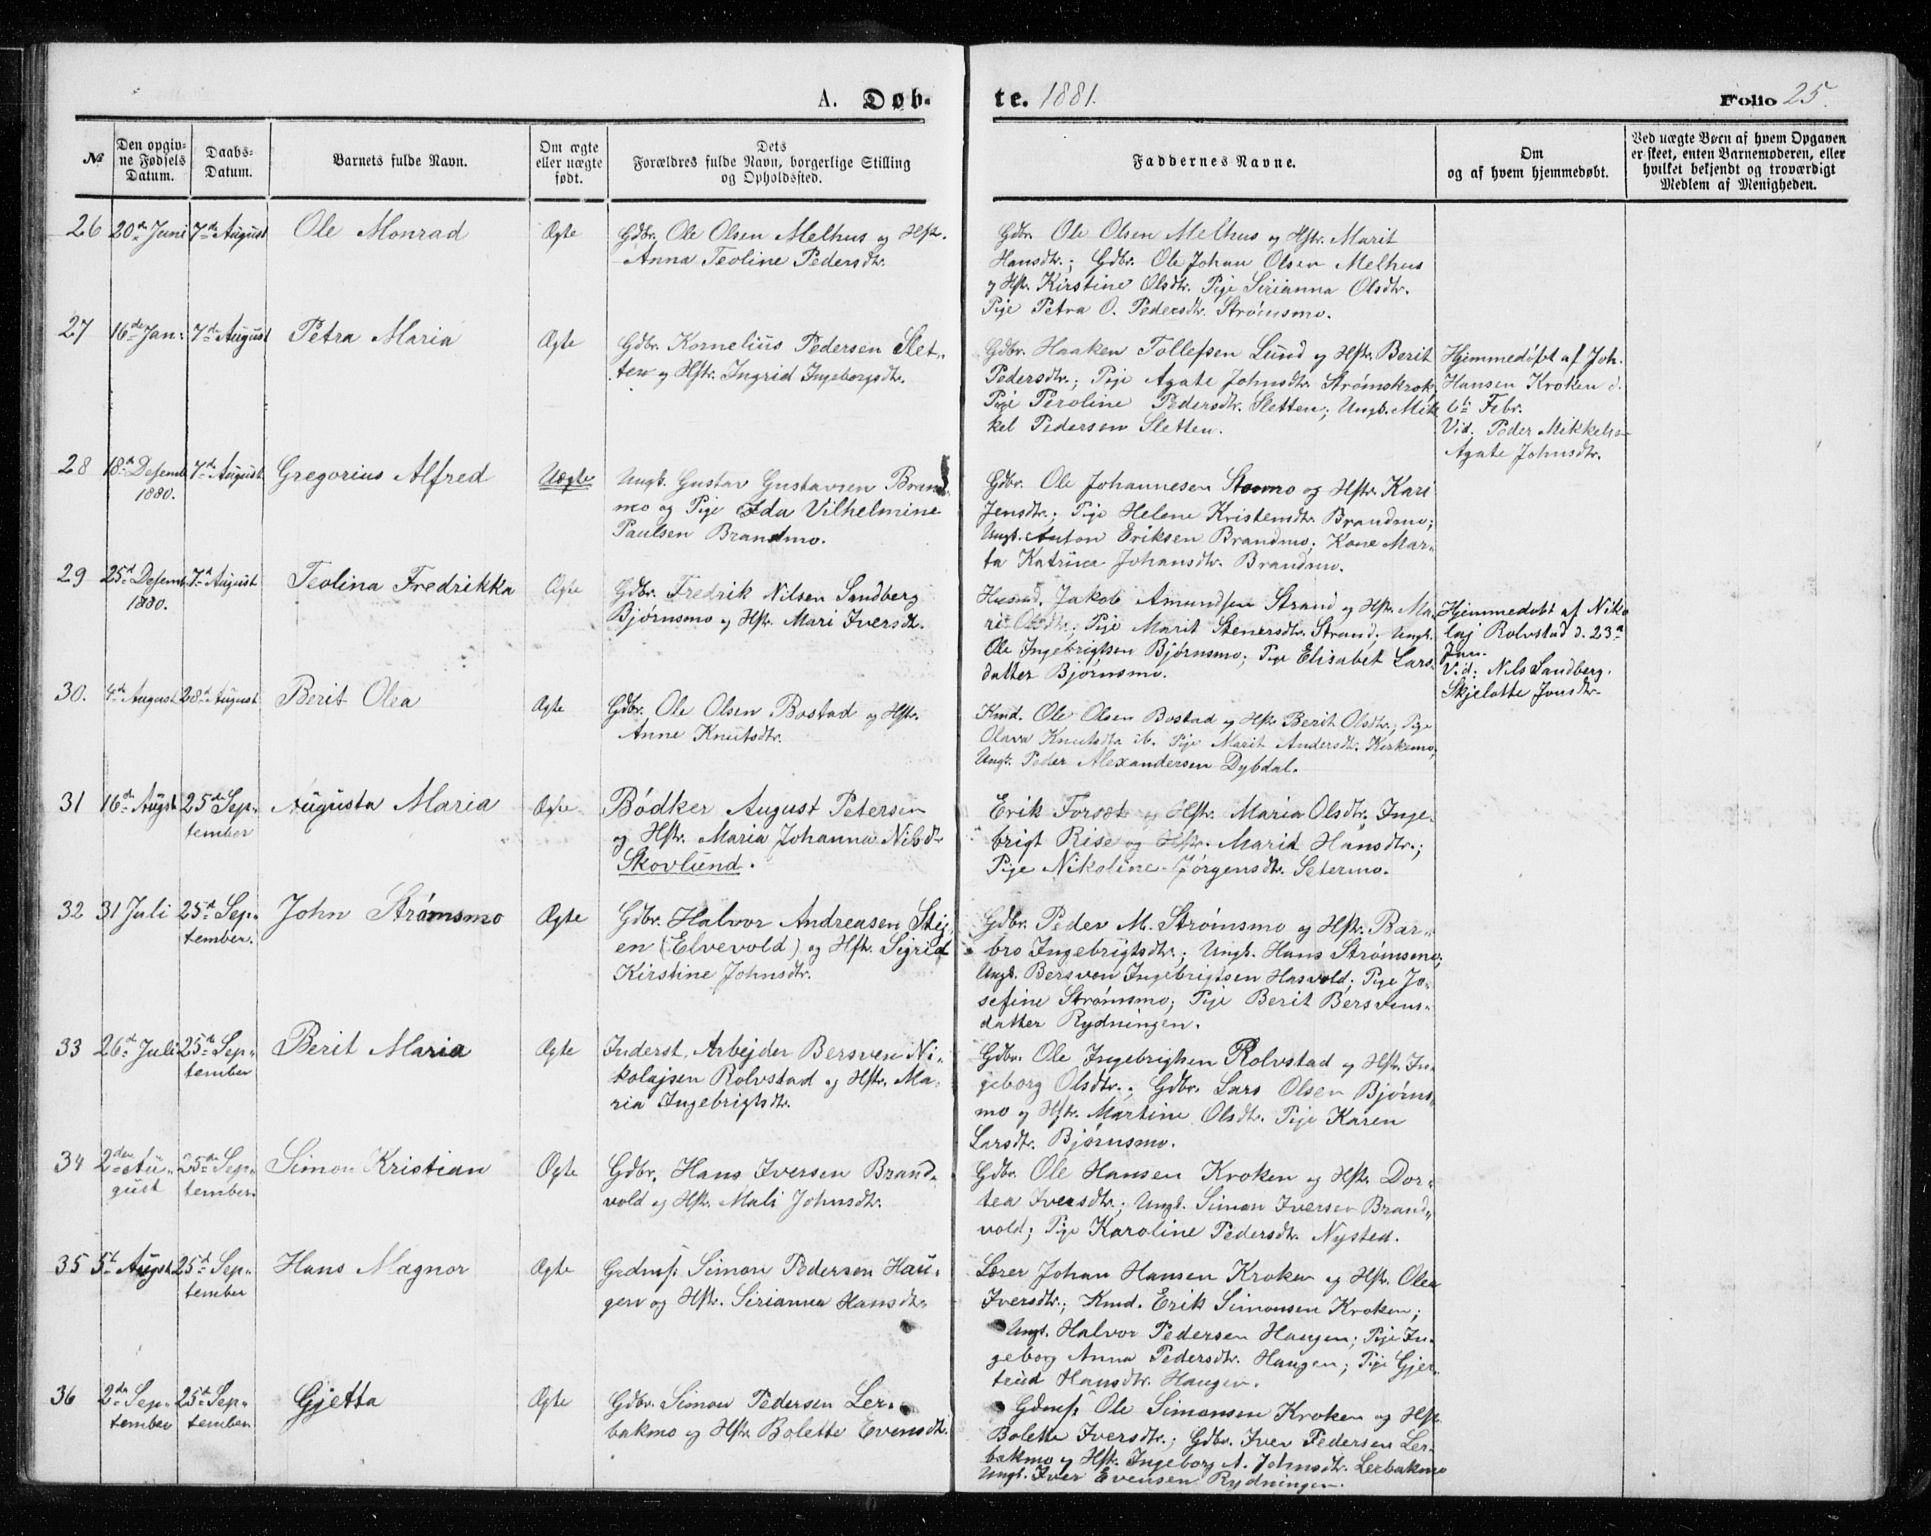 A. Døb-
te. 1881.
Folio 25.
№
Den opgiv-
ne Fødsels
Datum.
Daabs-
Datum.
Barnets fulde Navn.
Om ægte
eller uægte
født.
Dets
Forældres fulde Navn, borgerlige Stilling
og Opholdssted.
Faddernes Navne.
Om
og af hvem hjemmedøbt.
Ved uægte Børn af hvem Opgaven
er skeet, enten Barnemoderen, eller
hvilket bekjendt og troværdigt
Medlem af Menigheden.
26 20de Juni 7de August Ole Monrad Ægte
Gdbr. Ole Olsen Melhus og Hstr.
Anna Teoline Pedersdtr.
Gdbr. Ole Olsen Melhus og Hstr. Marit
Hansdtr.; Gdbr. Ole Johan Olsen Melhus
og Hstr. Kirstine Olsdtr. Pige Sirianna Olsdtr.
Pige Petra O. Pedersdtr. Strømsmo.
27 16de Jan. 7de August Petra Maria Ægte
Gdbr. Kornelius Pedersen Slet-
ten og Hstr. Ingrid Ingeborgsdtr.
Gdbr. Haaken Tollefsen Lund og Hstr. Berit
Pedersdtr.; Pige Agate Johnsdtr. Strømskrok,
Pige Peroline Pedersdtr. Sletten; Ungk. Mik
kel Pedersen Sletten.
Hjemmedøbt af Joh.
Hansen Kroken d.
6te Febr.
Vid. Peder Mikkels-
Agate Johnsdtr.
28 18de Desemb. 7de August Gregorius Alfred Uægte
1880.
Ungk. Gustav Gustavsen Brand
mo og Pige Ida Vilhelmine
Paulsen Brandmo.
Gdbr. Ole Johannesen Stormo og Hstr. Kari
Jensdtr.; Pige Helene Kristensdtr. Brandmo;
Ungk. Anton Eriksen Brandmo; Kone Mar-
ta Katrine Johansdtr. Brandmo.
29 25de Desemb. 7de August Teolina Fredrikka Ægte
1880.
Gdbr. Fredrik Nilsen Sandberg
Bjørnsmo og Hstr. Mari Iversdtr.
Husmd. Jakob Amundsen Strand og Hstr. Ma-
rit Olsdtr.; Pige Marit Stenersdtr. Strand; Ungk.
Ole Ingebrigtsen Bjørnsmo; Pige Elisabet Lars
datter Bjørnsmo.
Hjemmedøbt af Niko
laj Rolvstad d. 23de
Jan.
Vid: Nils Sandberg.
Skjelotte Jonsdtr.
30. 4de August 28de August Berit Olea Ægte
Gdbr. Ole Olsen Bostad og Hstr.
Anne Knutsdtr.
Kmd. Ole Olsen Bostad og Hstr. Berit Olsdtr.; Pige
Olava Knutsdtr. ib. Pige Marit Andersdtr. Kirkemo,
Ungk. Peder Alexandersen Dybdal.
31 16de Augst 25de Sep-
tember Augusta Maria Ægte
Bødker August Petersen
og Hstr. Maria Johanna Nilsdtr.
Skovlund.
Erik Forsæt og Hstr. Maria Olsdtr. Inge-
brigt Rise og Hstr. Marit Hansdtr.;
Pige Nikoline Jørgensdtr. Setermo.
32 31 Juli 25de Sep-
tember. John Strømsmo Ægte
Gdbr. Halvor Andreasen Stij-
en (Elvevold) og Hstr. Sigrid
Kirstine Johnsdtr.
Gdbr. Peder M. Strømsmo og Hstr. Bar-
bro Ingebrigtsdtr.; Ungk. Hans Strømsmo,
Ungk. Bersven Ingebrigtsen Hasvold; Pige Jo-
sefine Strømsmo; Pige Berit Bersvens-
datter Rydningen.
33 26de Juli 25de Sep-
tember Berit Maria Ægte
Inderst, Arbejder Bersven Ni-
kolajsen Rolvstad og Hstr. Ma-
ria Ingebrigtsdtr.
Gdbr. Ole Ingebrigtsen Rolvstad og Hstr. In-
geborg Olsdtr.; Gdbr. Lars Olsen Bjørns-
mo og Hstr. Martine Olsdtr. Pige Karen
Larsdtr. Bjørnsmo.
34 2den Au-
gust 25de Sep-
tember. Simon Kristian Ægte
Gdbr. Hans Iversen Brand-
vold og Hstr. Mali Johnsdtr.
Gdbr. Ole Hansen Kroken og Hstr. Dor-
tea Iversdtr.; Ungk. Simon Iversen Brand-
vold; Pige Karoline Pedersdtr. Nysted.
35 5te Augst 25de Sep-
tember Hans Magnor Ægte
Gadmf. Simon Pedersen Hau-
gen og Hstr. Sirianna Hansdtr.
Lærer Johan Hansen Kroken og Hstr. Olea
Iversdtr.; Kmd. Erik Simonsen Kroken;
Ungk. Halvor Pedersen Haugen; Pige In-
geborg Anna Pedersdtr. Haugen; Pige Gjer-
trud Hansdtr. Haugen.
36 2den Sep-
tember 25de Sep-
tember Gjetta Ægte
Gdbr. Simon Pedersen Ler-
bakmo og Hstr. Bolette Evensdtr.
Gdmf. Ole Simonsen Kroken og Hstr.
Bolette Iversdtr.; Gdbr. Iver Pedersen Ler-
bakmo og Hstr. Ingeborg A. Johnsdtr. Lerbakmo
Ungk. Iver Evensen Rydningen.